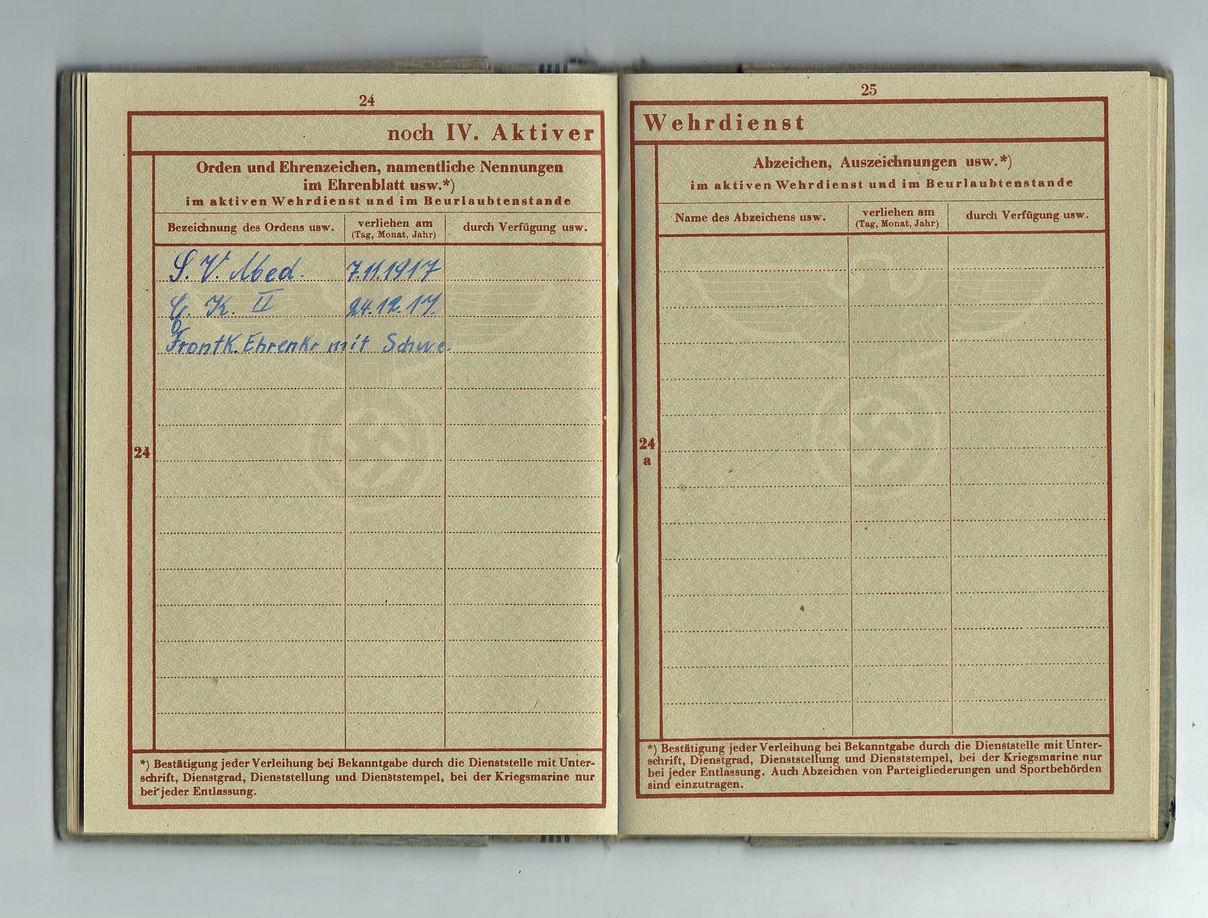 24
noch IV. Aktiver
Orden und Ehrenzeichen, namentliche Nennungen
im Ehrenblatt usw.*)
im aktiven Wehrdienst und im Beurlaubtenstande
Bezeichnung des Ordens usw.
verliehen am
(Tag, Monat, Jahr)
durch Verfügung usw.
S. V. Med. 7.11.1917
E. K. II 24.12.17.
FrontK. Ehrenkr mit Schwe.
24
*) Bestätigung jeder Verleihung bei Bekanntgabe durch die Dienststelle mit Unter-
schrift, Dienstgrad, Dienststellung und Dienststempel, bei der Kriegsmarine nur
bei jeder Entlassung.
25
Wehrdienst
Abzeichen, Auszeichnungen usw.*)
im aktiven Wehrdienst und im Beurlaubtenstande
Name des Abzeichens usw.
verliehen am
(Tag, Monat, Jahr)
durch Verfügung usw.
24
a
*) Bestätigung jeder Verleihung bei Bekanntgabe durch die Dienststelle mit Unter-
schrift, Dienstgrad, Dienststellung und Dienststempel, bei der Kriegsmarine nur
bei jeder Entlassung. Auch Abzeichen von Parteigliederungen und Sportbehörden
sind einzutragen.